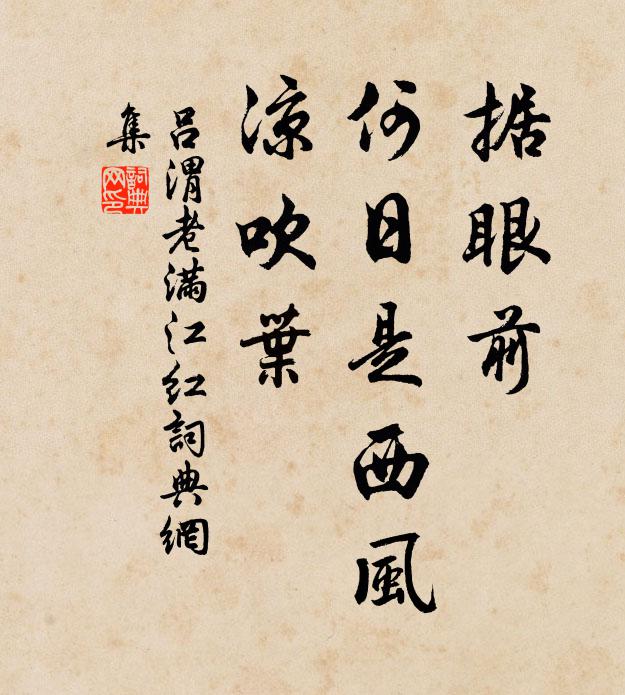 据眼前
何日是西風
涼吹葉
呂渭老滿江紅詞典網
集
詞典
网印